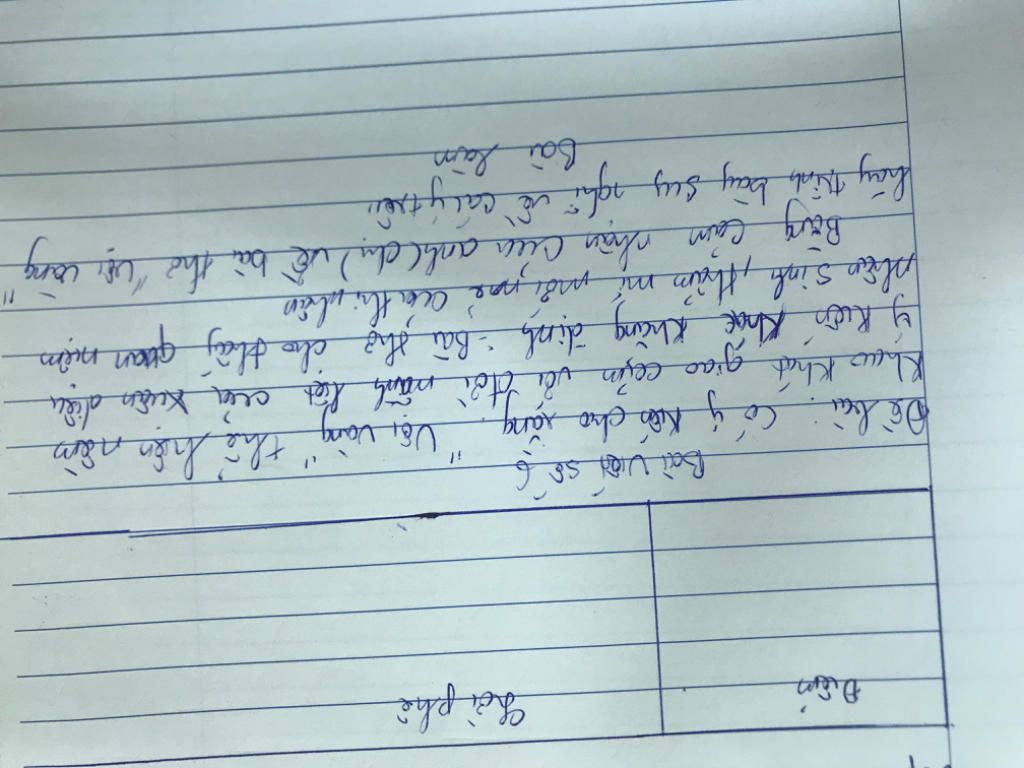 Điểm
Lời phê
Bài viết số 6
Đề bài: Có ý kiến cho rằng: "Vội vàng" thể hiện niềm
khao khát giao cảm với đời mãnh liệt của Xuân diệu
ý kiến khác khẳng định: Bài thơ cho thấy quan niệm
nhân sinh, thẩm mĩ mới mẻ của thi nhân
Bằng cảm nhận của anh(chị) về bài thơ "vội vàng"
hãy trình bày suy nghĩ về các ý trên
Bài làm